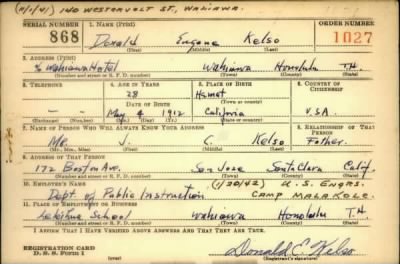 (2/1/41) 140 WESTERVOLT ST., WAHIAWA.
SERIAL NUMBER 1. NAME (Print) ORDER NUMBER
868 Donald Eugene Kelso 1027
(First) (Middle) (Last)
2. ADDRESS (Print)
% Wahiawa Hotel Wahiawa Honolulu T.H.
(Number and street or R. F. D. number) (Town) (County) (State)
3. TELEPHONE 4. AGE IN YEARS 5. PLACE OF BIRTH 6. COUNTRY OF CITIZENSHIP
28 Hemet
DATE OF BIRTH (Town or county)
May 4 1912 California U.S.A.
(Exchange) (Number) (Mo.) (Day) (Yr.) (State or country)
7. NAME OF PERSON WHO WILL ALWAYS KNOW YOUR ADDRESS 8. RELATIONSHIP OF THAT PERSON
Mr. J. C. Kelso Father
(Mr., Mrs., Miss) (First) (Middle) (Last)
9. ADDRESS OF THAT PERSON
172 Boston Ave. San Jose Santa Clara Calif.
(Number and street or R. F. D. number) (Town) (County) (State)
10. EMPLOYER'S NAME (1/30/42) U.S. ENGRS.
Dept. of Public Instruction CAMP MALAKOLE.
11. PLACE OF EMPLOYMENT OR BUSINESS
Leilehua School Wahiawa Honolulu T.H.
(Number and street or R. F. D. number) (Town) (County) (State)
I AFFIRM THAT I HAVE VERIFIED ABOVE ANSWERS AND THAT THEY ARE TRUE.
REGISTRATION CARD
D. S. S. Form 1 Donald E. Kelso
(Registrant's signature)